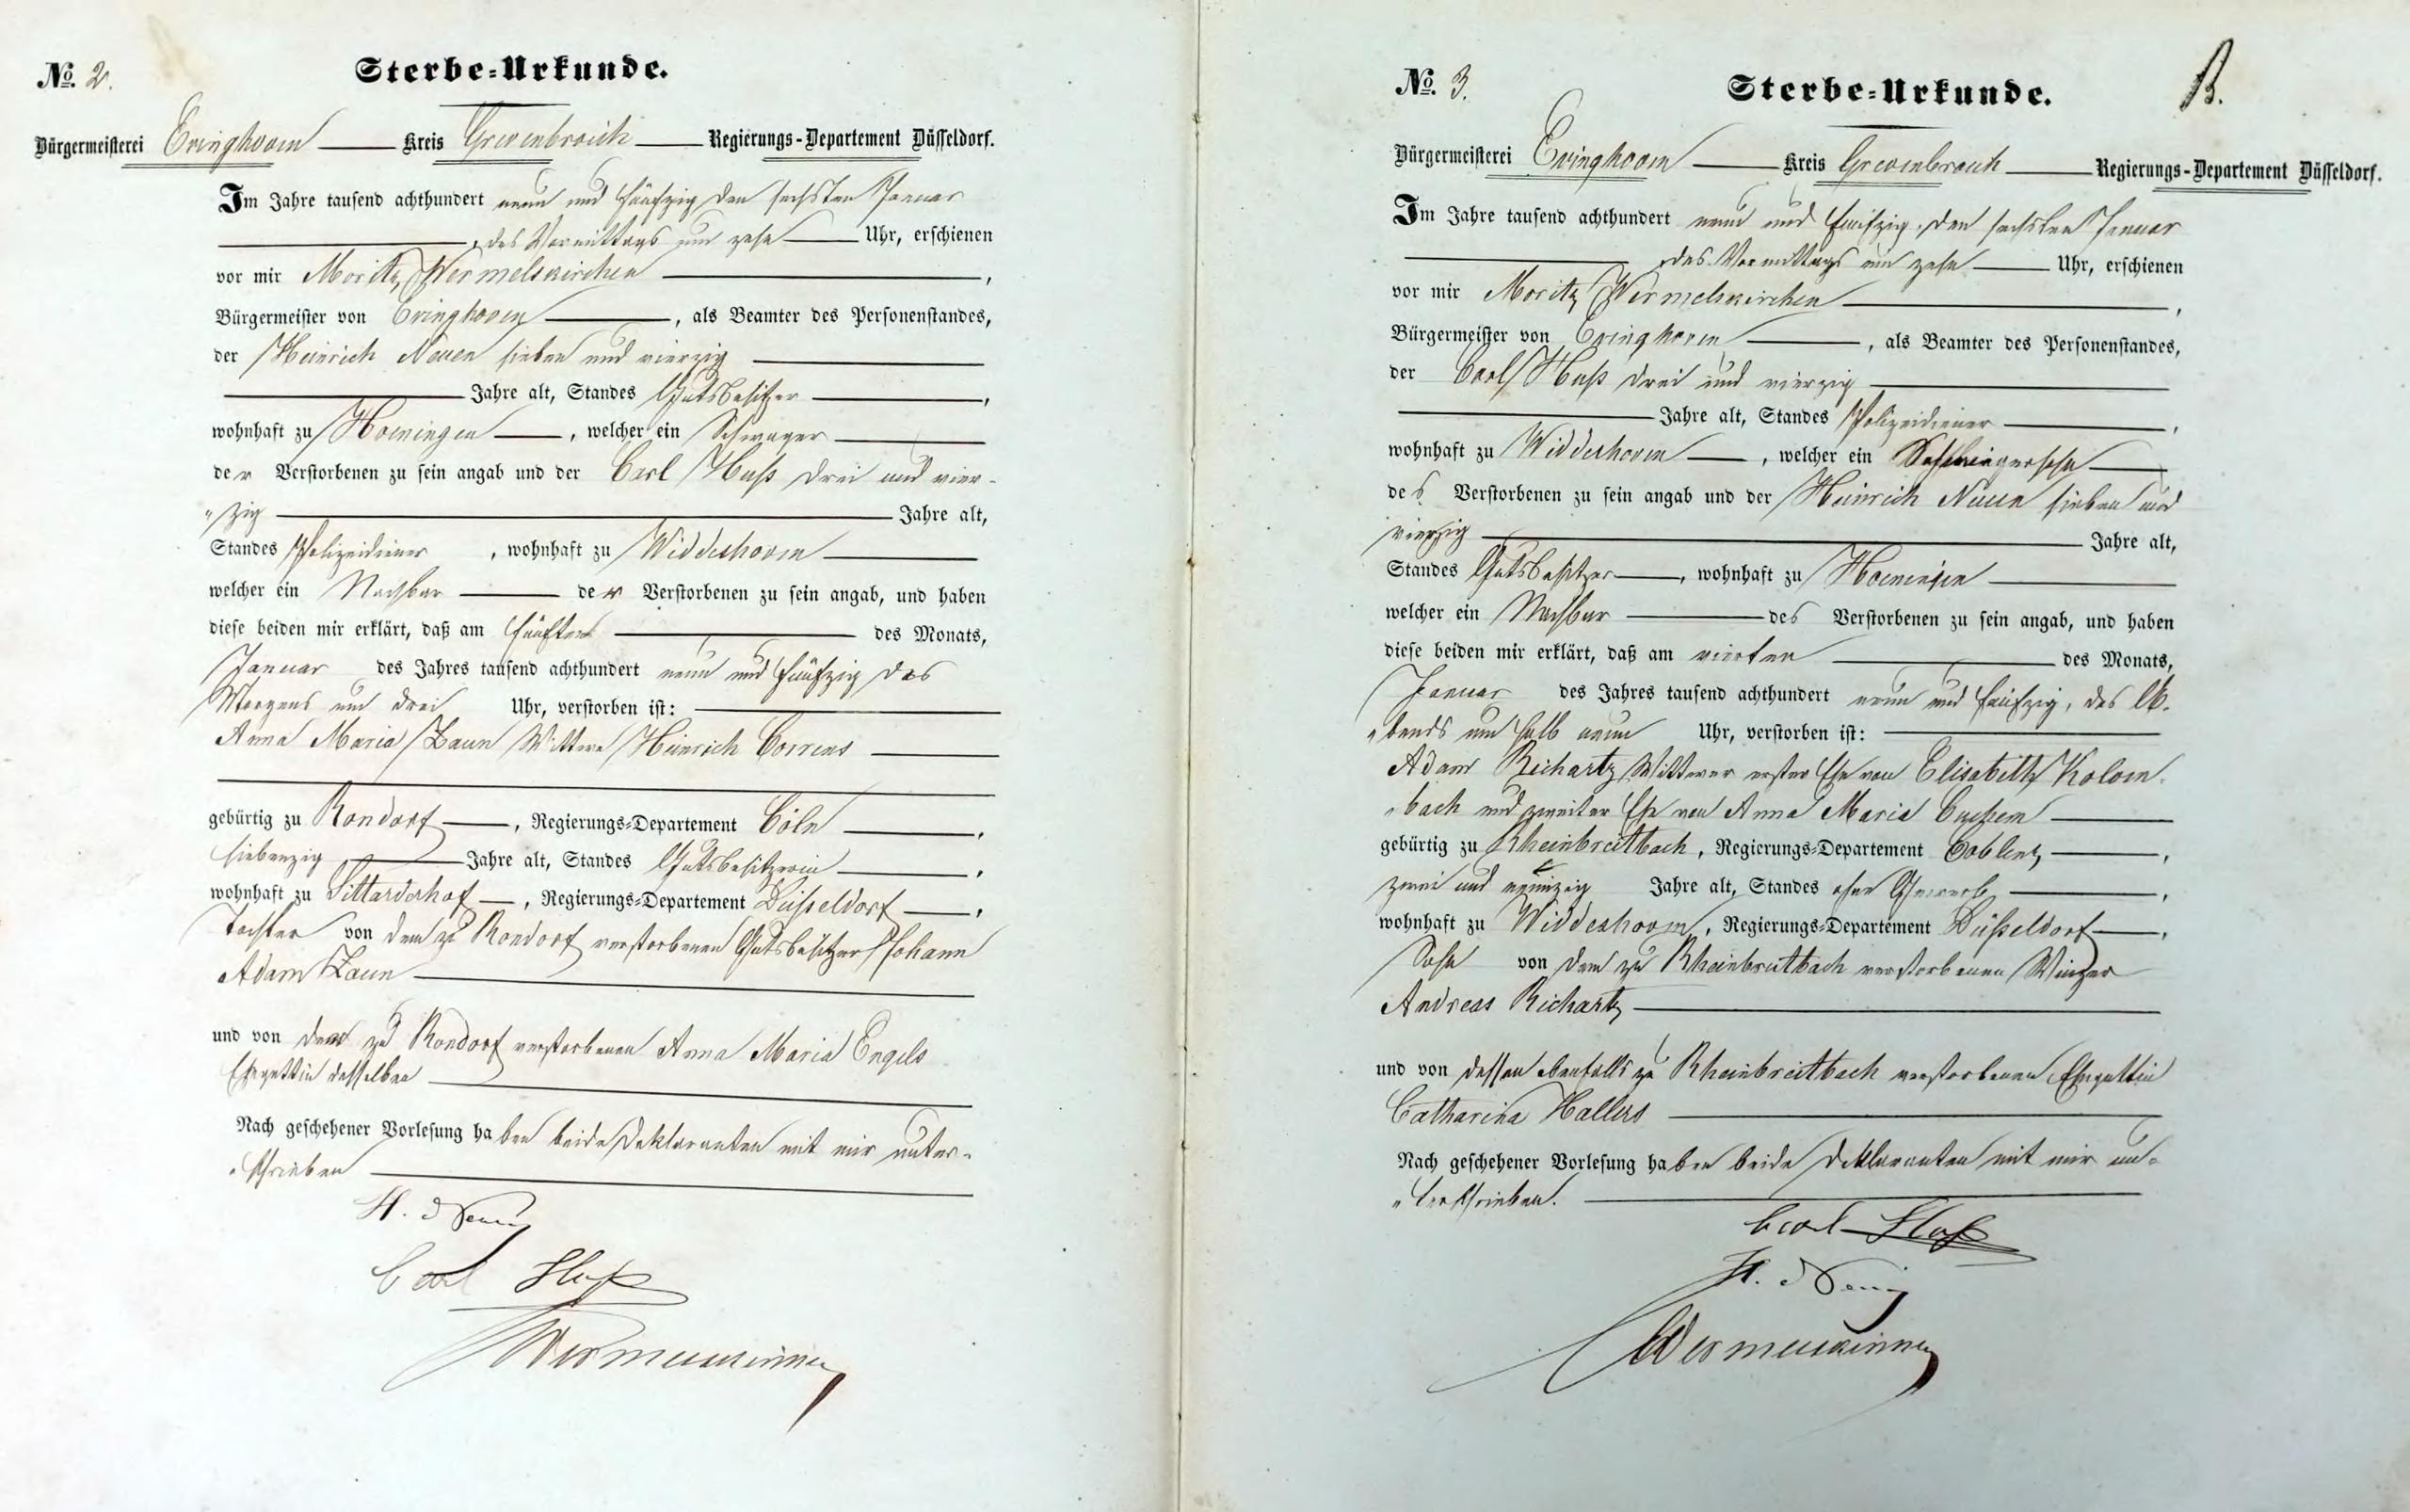 No. 2.
Sterbe-Urkunde.
Bürgermeisterei Evinghoven Kreis Grevenbroich Regierungs-Departement Düsseldorf.
Im Jahre tausend achthundert neun und fünfzig den sechsten Januar
, des Vormittags um zehn Uhr, erschienen
vor mir Moritz Wermelskirchen ,
Bürgermeister von Evinghoven , als Beamter des Personenstandes,
der Heinrich Neuen sieben und vierzig
Jahre alt, Standes Gutsbesitzer ,
wohnhaft zu Hoeningen , welcher ein Schwager
der Verstorbenen zu sein angab und der Carl Huß drei und vier-
"zig Jahre alt,
Standes Polizeidiener , wohnhaft zu Widdeshoven
welcher ein Nachbar der Verstorbenen zu sein angab, und haben
diese beiden mir erklärt, daß am fünften des Monats,
Januar des Jahres tausend achthundert neun und fünfzig des
Morgens um drei Uhr, verstorben ist:
Anna Maria Zaun Wittwe Heinrich Correns
gebürtig zu Rondorf , Regierungs-Departement Cöln ,
siebenzig Jahre alt, Standes Gutsbesitzerin ,
wohnhaft zu Sittarderhof , Regierungs-Departement Düsseldorf ,
Tochter von dem zu Rondorf verstorbenen Gutsbesitzer Johann
Adam Zaun
und von der zu Rondorf verstorbenen Anna Maria Engels
Ehegattin desselben
Nach geschehener Vorlesung haben beide Deklaranten mit mir unter-
"schrieben
H. Neuen
Carl Huß
Wermelskirchen
No. 3.
Sterbe-Urkunde.
B.
Bürgermeisterei Evinghoven Kreis Grevenbroich Regierungs-Departement Düsseldorf.
Im Jahre tausend achthundert neun und fünfzig, den sechsten Januar
, des Vormittags um zehn Uhr, erschienen
vor mir Moritz Wermelskirchen ,
Bürgermeister von Evinghoven , als Beamter des Personenstandes,
der Carl Huß drei und vierzig
Jahre alt, Standes Polizeidiener ,
wohnhaft zu Widdeshoven , welcher ein Schwiegersohn
des Verstorbenen zu sein angab und der Heinrich Neuen sieben und
vierzig Jahre alt,
Standes Gutsbesitzer , wohnhaft zu Hoeningen
welcher ein Nachbar des Verstorbenen zu sein angab, und haben
diese beiden mir erklärt, daß am vierten des Monats,
Januar des Jahres tausend achthundert neun und fünfzig, des A-
"bends um halb neun Uhr, verstorben ist:
Adam Richartz Wittwer erster Ehe von Elisabeth Kolven-
"bach und zweiter Ehe von Anna Maria
gebürtig zu Rheinbreitbach , Regierungs-Departement Coblenz ,
zwei und neunzig Jahre alt, Standes ohne Gewerb ,
wohnhaft zu Widdeshoven , Regierungs-Departement Düßeldorf ,
Sohn von dem zu Rheinbreitbach verstorbenen Winzer
Andreas Richartz
und von dessen ebenfalls zu Rheinbreitbach verstorbenen Ehegattin
Catharina Hallers
Nach geschehener Vorlesung haben beide Deklaranten mit mir un-
"terschrieben.
Carl Huß
H. Neuen
Wermelskirchen